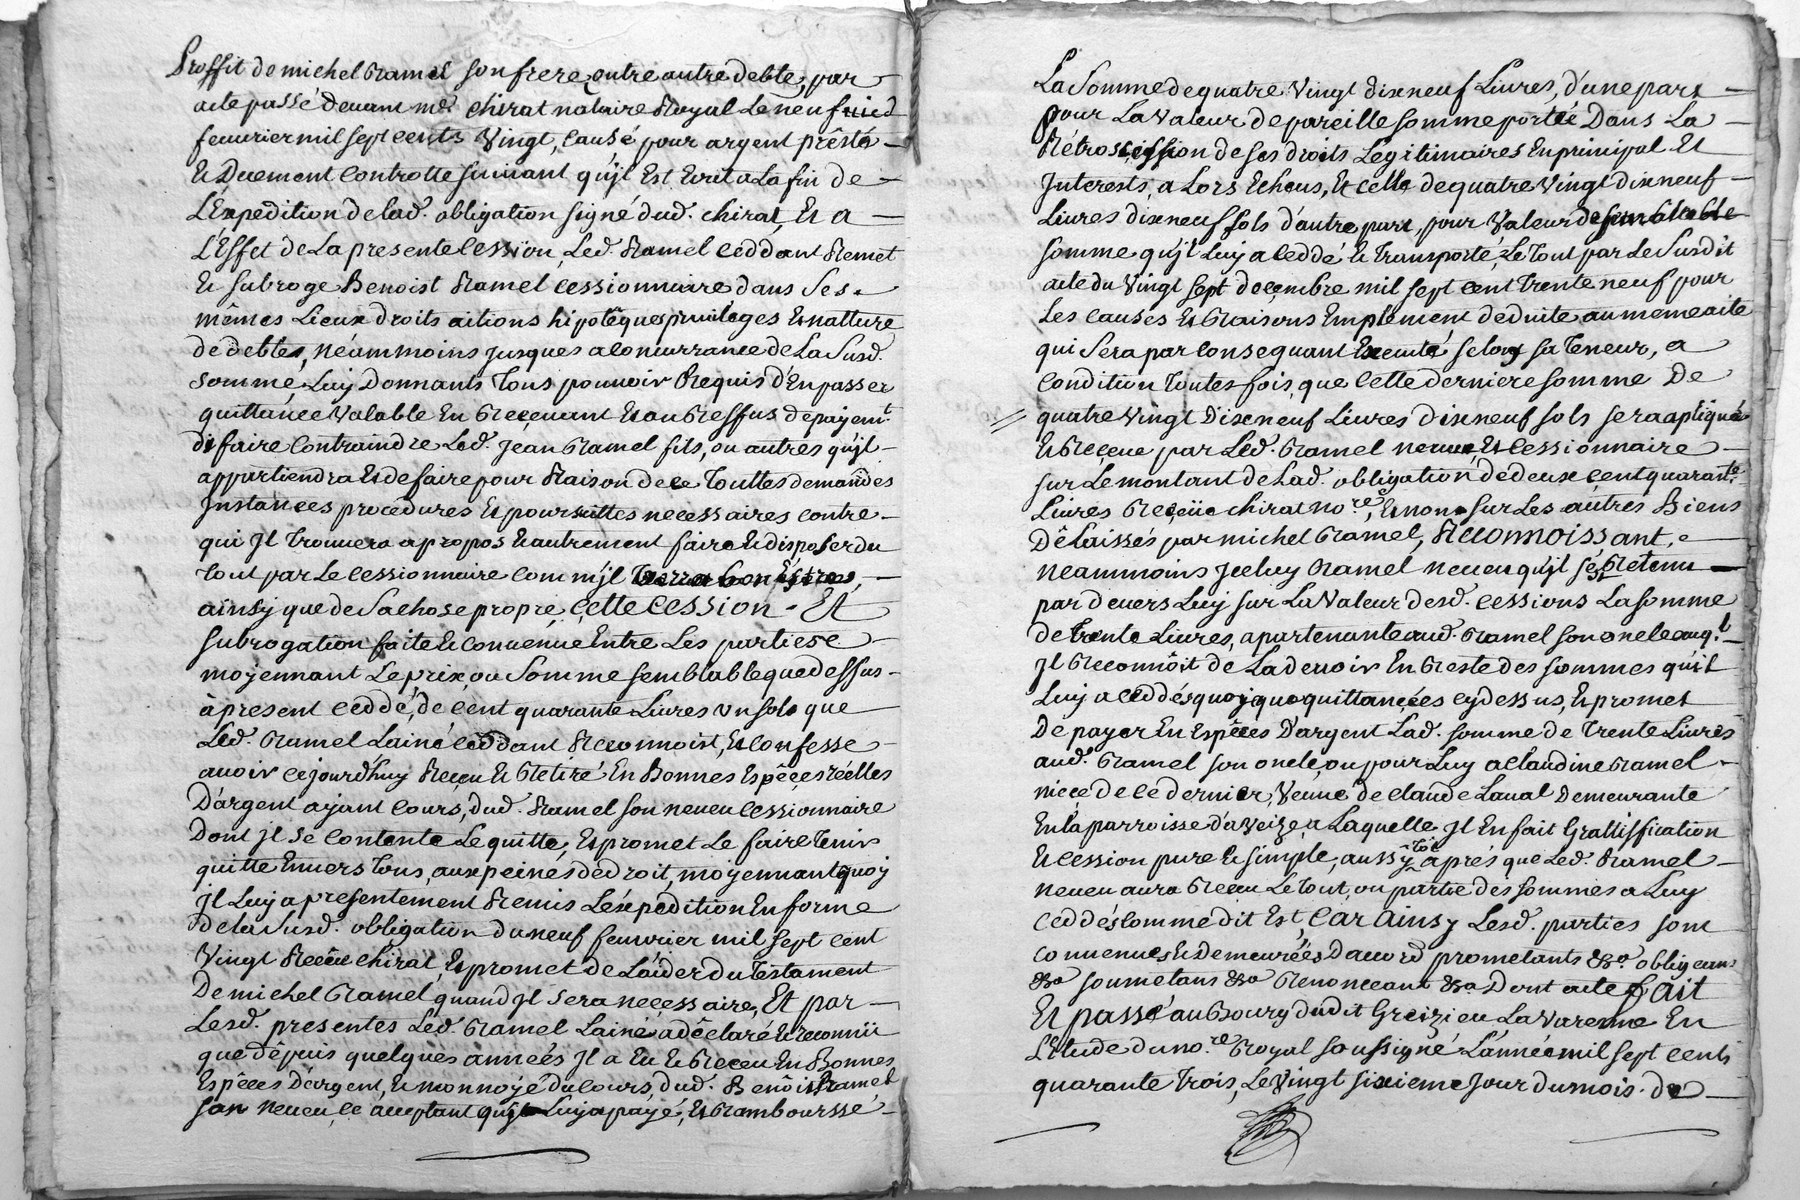 Proffit de michel Ramel son frere, entre autre debte, par
acte passé devant me. chirat notaire Royal Le neufuied
feuurier mil sept cents Vingt, causé pour argent prêsté
Et Deuement Controtte suiuant qu'jl Est Ecrit a La fin de
L'Expedition de lad. obligation signé dud. chirat, Et a
L'Effet de La presente Cession, Led. Ramel Ceddant Remet
Et subroge Benoist Ramel Cessionnaire dans Ses
mêmes Lieux droits aitions hipotêques priuileges Et natture
de debtes, néammoins jusques a concurrance de La Susd.
somme, Luy Donnants Tous pouuoir Requis d'En passer
quittance Valable En Receuant Et au Reffus de payemt.
de faire Contraindre Led. Jean Ramel fils, ou autres qu'jl
appartiendra Et de faire pour Raison de ce Touttes demandes
Jnstances procedures Et poursuittes necessaires contre
qui Jl Trouuera a propos Et autrement faire Et disposer du
Tout par Le Cessionnaire Comm'jl Verra bon Estre,
ainsy que de Sa chose propre, Cette Cession Et
subrogation faite Et Conuenue Entre Les parties
moyennant Le prix, ou Somme semblable que dessus
à present Ceddé, de Cent quarante Liures un sols que
Led. Ramel Lainé Ceddant Reconnoit, Et Confesse
auoir cejourd'huy Reçeu Et Retiré En Bonnes Espêces réelles
D'argent ayant Cours, dud. Ramel son neueu Cessionnaire
Dont jl Se Contente Le quitte, Et promet Le faire Tenir
quitte Enuers Tous, aux peines de droit, moyennant quoy
jl Luy a presentement Remis L'éxpedition En forme
de la Susd. obligation du neuf feuurier mil sept Cent
Vingt Receüe Chirat, Et promet de L'aider du Testament
De michel Ramel, quand jl sera necessaire, Et par
Lesd. presentes Led. Ramel Lainé a dêclaré Et reconnü
que depuis quelques années Jl a Eu Et Receu En Bonnes
Espêces D'argent, Et monnoyé du Cours, dud. Benoist Ramel
son neueu, ce acceptant qu'jl Luy a payé, Et Rambourssé
La Somme de quatre Vingt dixneuf Liures, d'une part
pour La Valeur de pareille somme portée Dans La
Rétrocession de ses droits Légitimaires En principal Et
Jnterests, a Lors Echeus, Et Celle de quatre Vingt dixneuf
Liures dixneuf sols d'autre part, pour Valeur de semblable
somme qu'jl Luy a Ceddé Et Transporté, Le Tout par Le Susdit
acte du Vingt sept decembre mil sept cent Trente neuf pour
Les Causes Et Raisons Emplement deduite au meme acte
qui Sera par Consequant Executé selon sa Teneur, a
Condition Toutes fois, que Cette derniere somme De
quatre Vingt Dixneuf Liures dixneuf sols sera apliqué
Et Reçeue par Led. Ramel neueu, Et Cessionnaire
sur Le montant de Lad. obligation de deux cent quarante
Liures Reçeüe chirat nore, Et non sur Les autres Biens
Delaissés par michel Ramel, Reconnoissant,
neammoins Jceluy Ramel neueu qu'jl s'est Retenu
par deuers Luy sur La Valeur desd. Cessions La somme
de trente Liures, apartenante aud. Ramel son oncle auql.
Jl Reconnôit de La deuoir En Reste des sommes qu'il
Luy a Ceddés quoyque quittancées cy dessus, Et promet
De payer En Espêces D'argent Lad. somme de Trente Liures
aud. Ramel son oncle, ou pour Luy a Claudine Ramel
niece de ce dernier, Veuue de Claude Laual Demeurante
En la parroisse d'aveize, a Laquelle Jl En fait Grattiffication
Et Cession pure Et simple, aussytôt aprés que Led. Ramel
neueu aura Receu Le Tout, ou partie des sommes a Luy
Ceddés Comme dit Est, Car Ainsy Lesd. parties sont
Conuenues Et Demeurées D'accord prometants &a. obligeans
&a soumetans &a Renonceant &a Dont acte Fait
Et passé au Bourg dudit Greizieu La Varenne En
L'Etude du nore. Royal soussigné L'année mil sept cents
quarante Trois, Le Vingt sixieme Jour du mois de